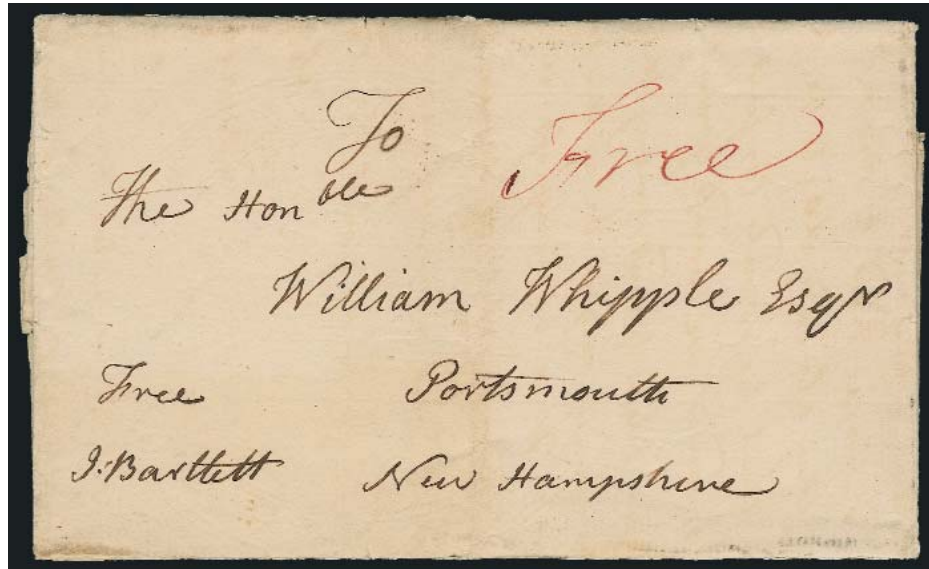 To
Free
The Honble
William Whipple Esqr
Free
Portsmouth
J: Bartlett
New Hampshire